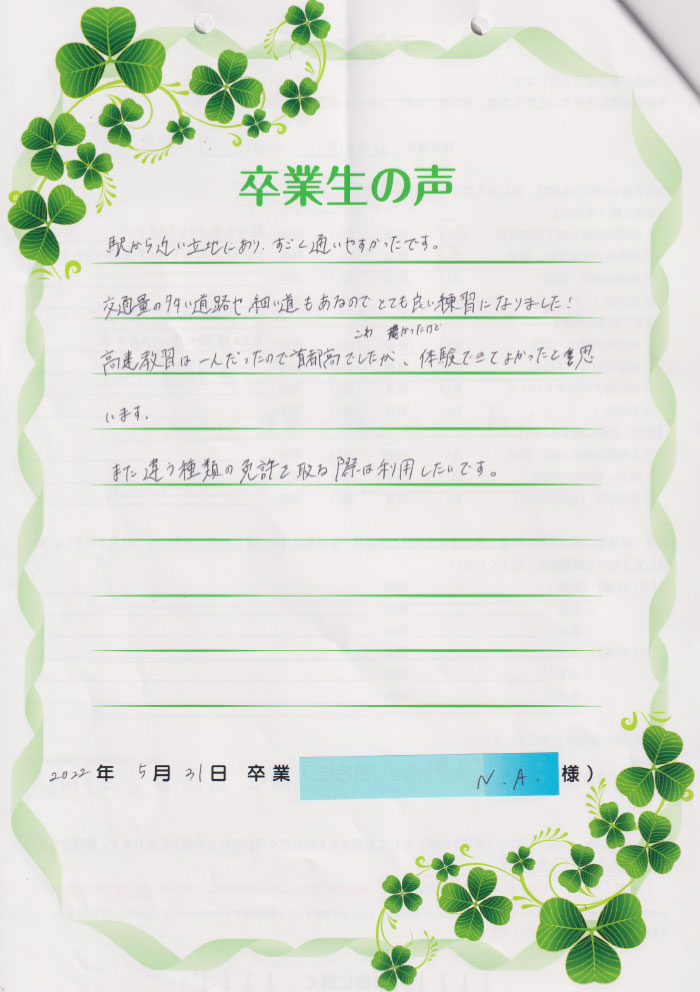 卒業生の声
駅から近い立地にあり、すごく通いやすかったです。
交通量の多い道路や細い道もあるのでとても良い練習になりました！
こわかったけど
高速教習は一人だったので首都高でしたが、体験できてよかったと思
います。
また違う種類の免許を取る際は利用したいです。
2022年 5月31日 卒業 N.A. 様）